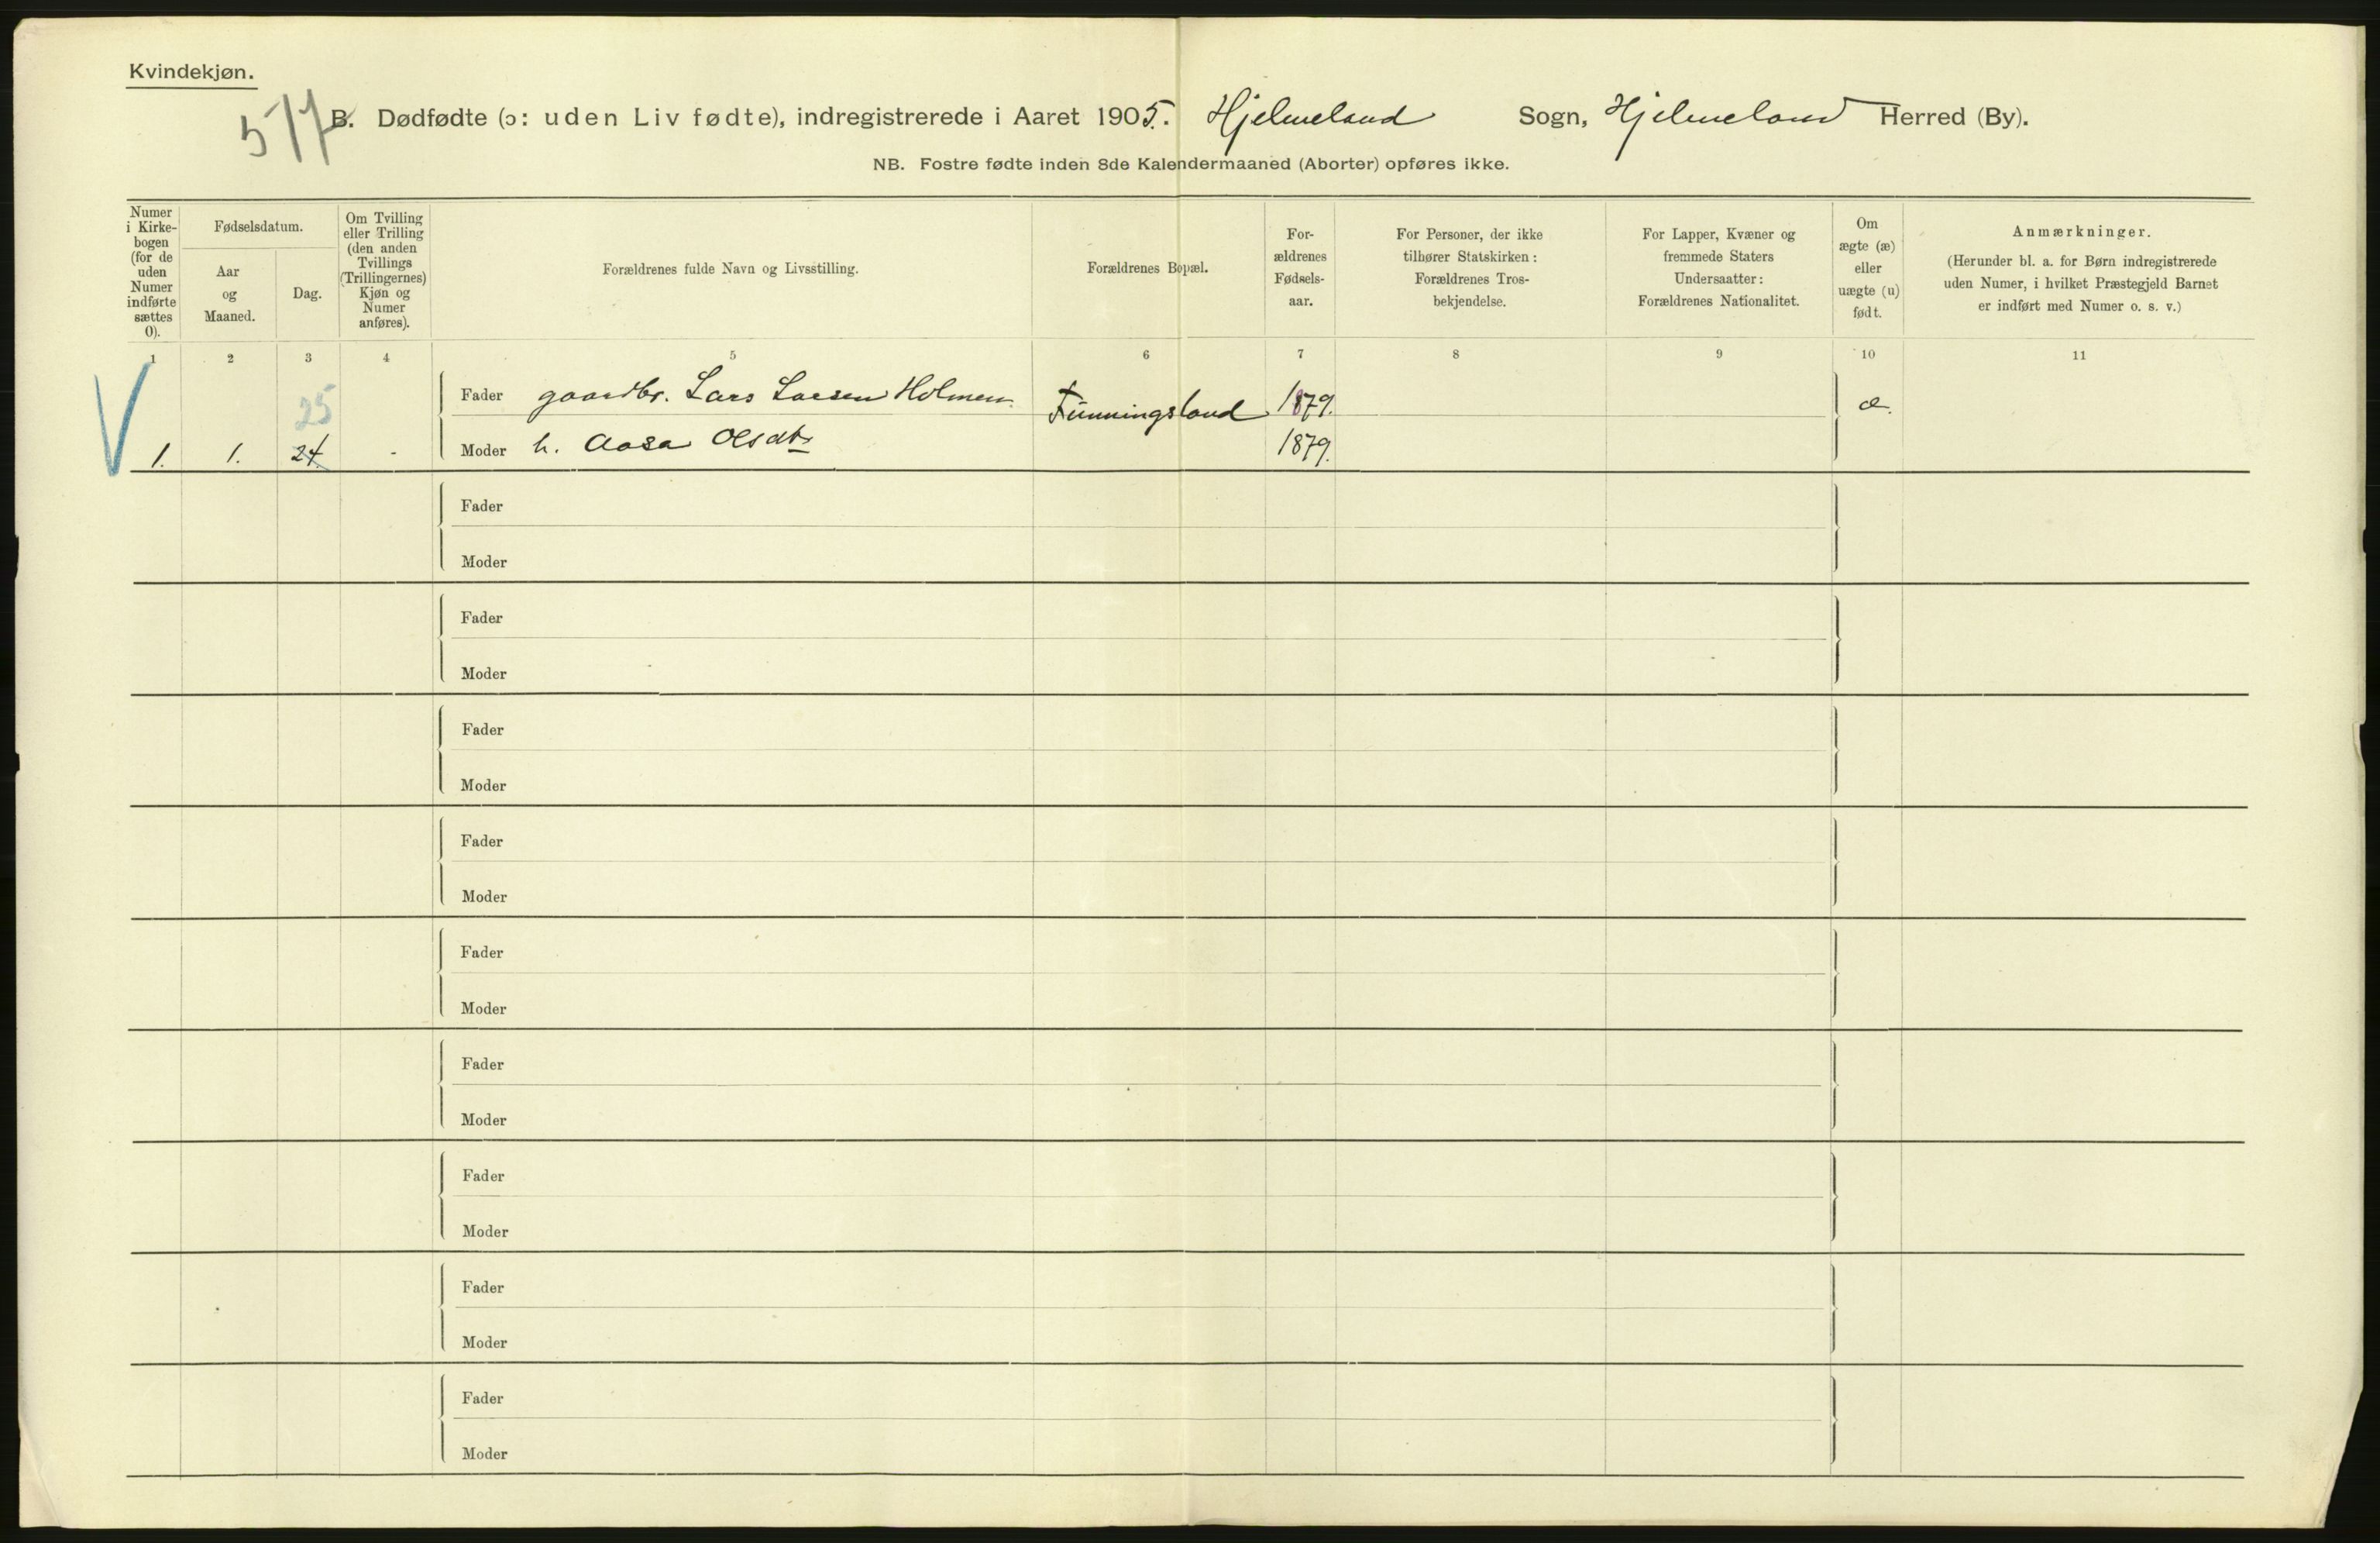 Kvindekjøn.
B. Dødfødte (ɔ: uden Liv fødte), indregistrerede i Aaret 1905. Hjelmeland Sogn, Hjelmeland Herred (By).
NB. Fostre fødte inden 8de Kalendermaaned (Aborter) opføres ikke.
Numer i Kirkebogen (for de uden Numer indførte sættes 0).
Fødselsdatum.
Aar og Maaned.
Dag.
Om Tvilling eller Trilling (den anden Tvillings (Trillingernes) Kjøn og Numer anføres).
Forældrenes fulde Navn og Livsstilling.
Forældrenes Bopæl.
For-
ældrenes
Fødsels-
aar.
For Personer, der ikke
tilhører Statskirken:
Forældrenes Tros-
bekjendelse.
For Lapper, Kvæner og
fremmede Staters
Undersaatter:
Forældrenes Nationalitet.
Om
ægte (æ)
eller
uægte (u)
født.
Anmærkninger.
(Herunder bl. a. for Børn indregistrerede
uden Numer, i hvilket Præstegjeld Barnet
er indført med Numer o. s. v.)
1 2 3 4 5 6 7 8 9 10 11
25
Fader gaardbr. Lars Larsen Holmen 1879. æ.
1. 1. 24. - Moder h. Aasa Olsdtr 1879.
Fader
Moder
Fader
Moder
Fader
Moder
Fader
Moder
Fader
Moder
Fader
Moder
Fader
Moder
Fader
Moder
Fader
Moder